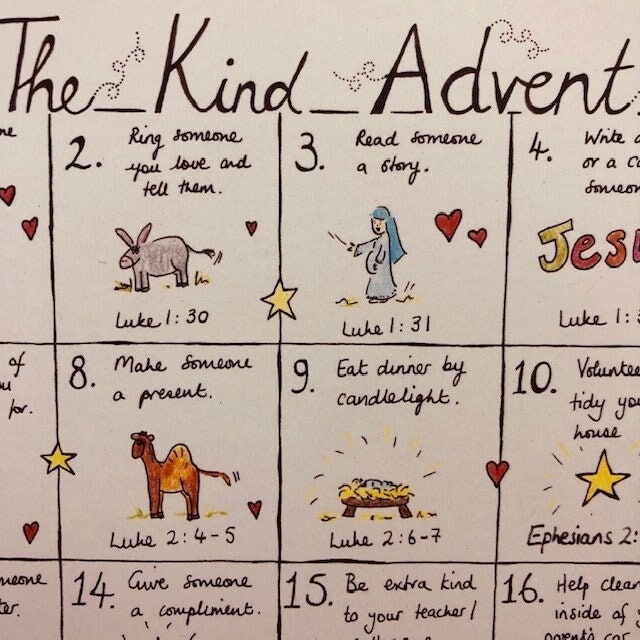 The Kind Advent
2.
Ring someone
you love and
tell them.
Luke 1:30
3.
Read someone
a story.
Luke 1:31
4.
Write a
or a
someon
Jesu
Luke 1:
of
for.
8.
Make someone
a present.
Luke 2:4-5
9.
Eat dinner by
candlelight.
Luke 2:6-7
10.
Voluntee
tidy you
house
Ephesians 2:
14.
Give someone
a compliment.
15.
Be extra kind
to your teacher/
16.
Help clean
inside of